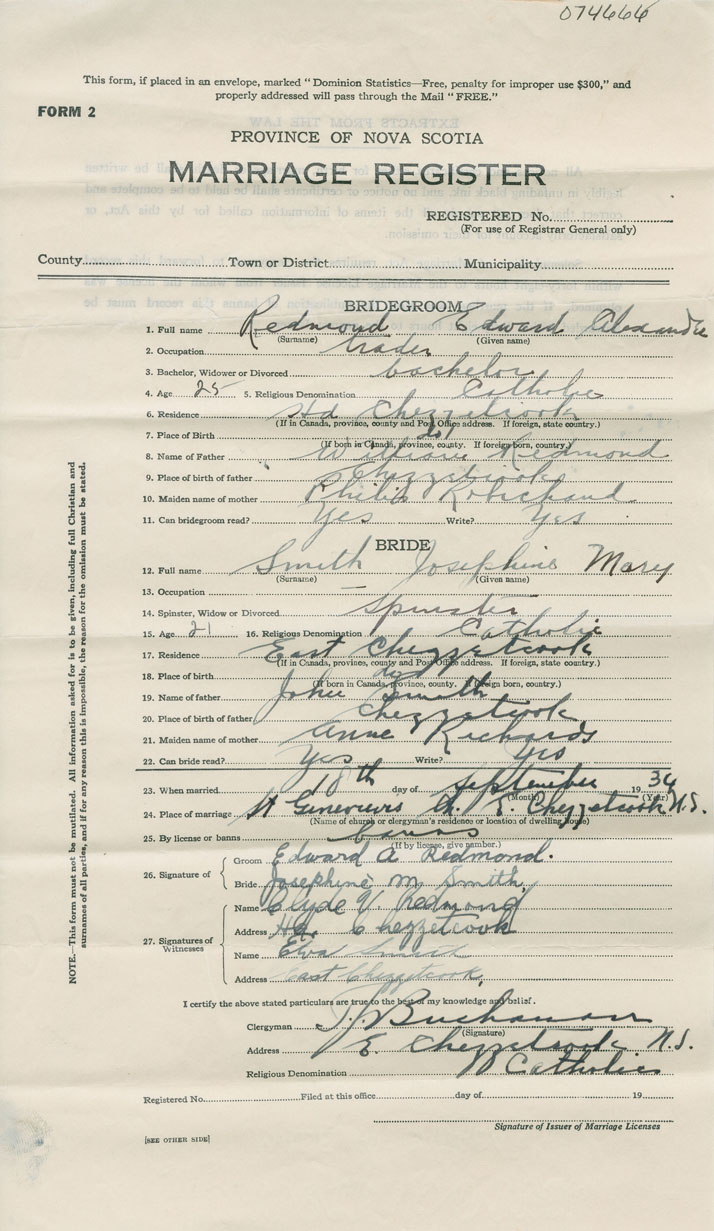 074666
This form, if placed in an envelope, marked "Dominion Statistics—Free, penalty for improper use $300," and
properly addressed will pass through the Mail "FREE."
FORM 2
PROVINCE OF NOVA SCOTIA
MARRIAGE REGISTER
REGISTERED No.
(For use of Registrar General only)
County Town or District Municipality
BRIDEGROOM
1. Full name Redmond Edward Alexander
(Surname) (Given name)
2. Occupation trader
3. Bachelor, Widower or Divorced bachelor
4. Age 25 5. Religious Denomination Catholic
6. Residence Hd Chezzetcook
(If in Canada, province, county and Post Office address. If foreign, state country.)
7. Place of Birth
(If born in Canada, province, county. If foreign born, country.)
8. Name of Father William Redmond
9. Place of birth of father Chezzetcook
10. Maiden name of mother Robichaud
11. Can bridegroom read? Yes Write? Yes
BRIDE
12. Full name Smith Josephine Mary
(Surname) (Given name)
13. Occupation —
14. Spinster, Widow or Divorced Spinster
15. Age 21 16. Religious Denomination Catholic
17. Residence East Chezzetcook
(If in Canada, province, county and Post Office address. If foreign, state country.)
18. Place of Birth
(If born in Canada, province, county. If foreign born, country.)
19. Name of father John Smith
20. Place of birth of father Chezzetcook
21. Maiden name of mother Anne Richards
22. Can bride read? Yes Write? Yes
23. When married 18th day of September 1934
(Month) (Year)
24. Place of marriage St Genevieves Ch. E. Chezzetcook N.S.
(Name of church or clergyman's residence or location of dwelling house)
25. By license or banns banns
(If by license, give number.)
26. Signature of
Groom Edward A Redmond.
Bride Josephine M Smith
27. Signatures of Witnesses
Name Clyde V. Redmond
Address Hd. Chezzetcook
Name Eva Smith
Address East Chezzetcook,
I certify the above stated particulars are true to the best of my knowledge and belief.
Clergyman Buchanan
(Signature)
Address E. Chezzetcook N.S.
Religious Denomination Catholic
Registered No. Filed at this office day of 19
Signature of Issuer of Marriage Licenses
[SEE OTHER SIDE]
NOTE.—This form must not be mutilated. All information asked for is to be given, including full Christian and
surnames of all parties, and if for any reason this is impossible, the reason for the omission must be stated.